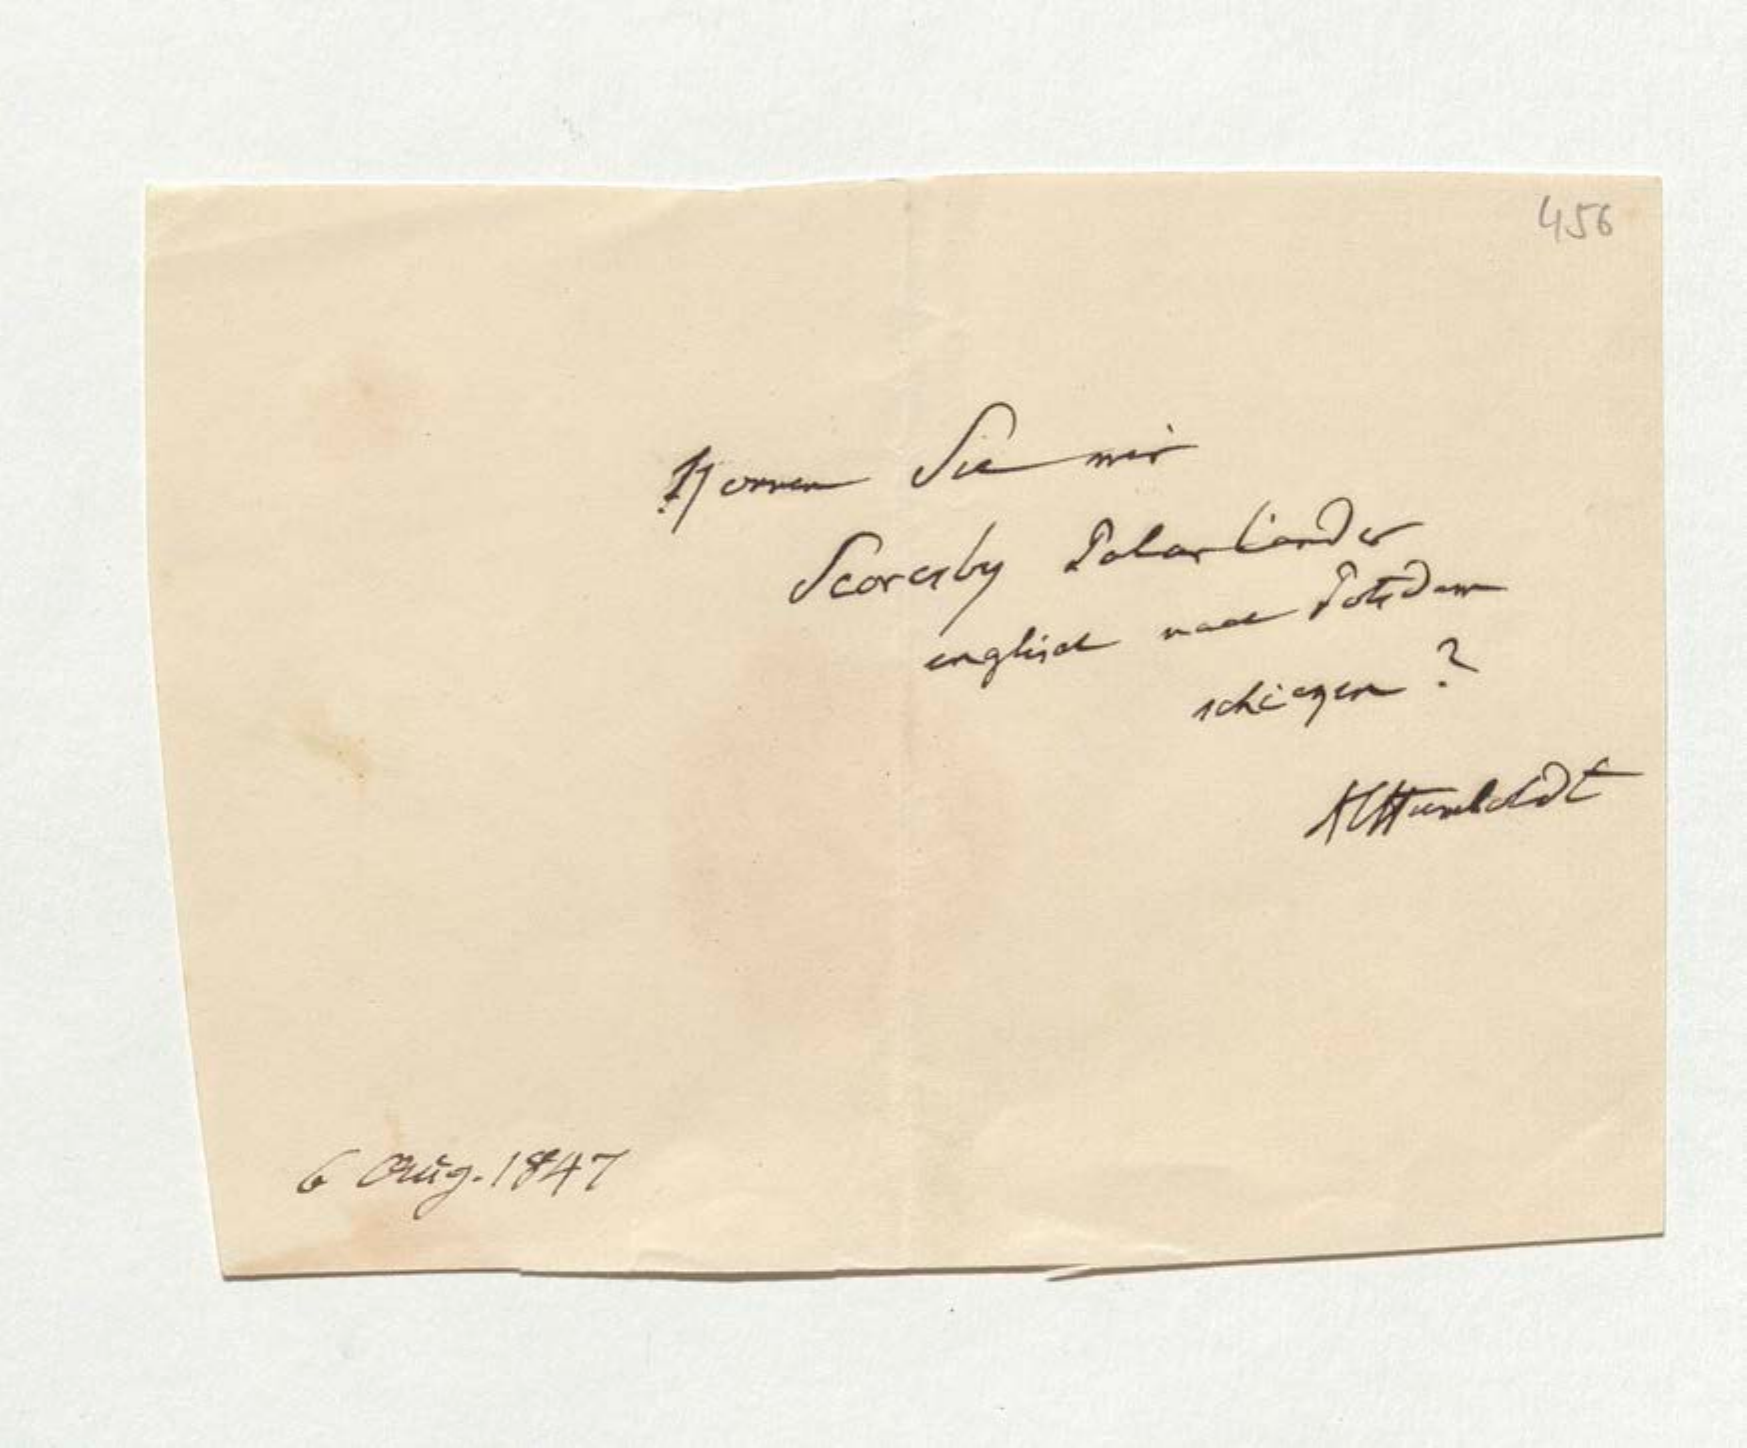 456
Können Sie mir
Scoresby Polarländer
englisch nach Potsdam
schicken?
AlHumboldt
6 Aug. 1847